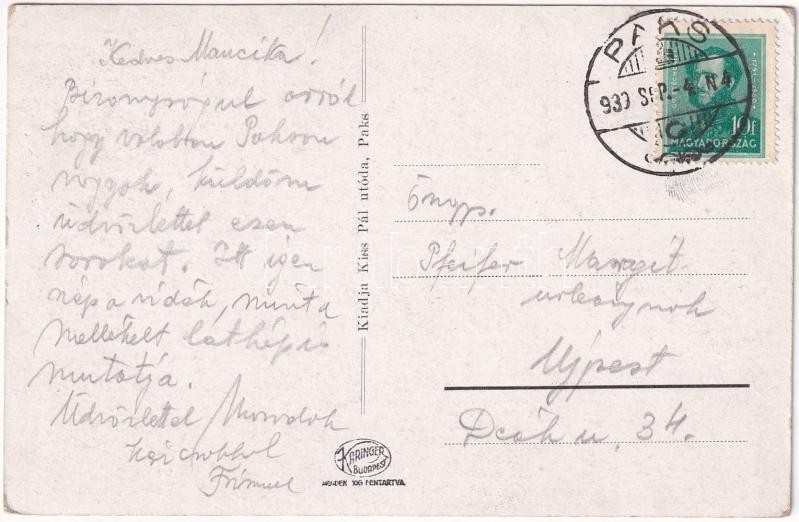 Kedves Maucika!
Bizonyságul arról
hogy valoban Pakson
vagyok, küldöm
üdvözlettel ezen
sorokat. Itt igen
a vidék, mint a
mellékelt látkép is
mutatja.
Üdvözlettel Maradok
Kiadja Kiss Pál utóda, Paks
KARINGER
BUDAPEST
MINDEN JOG FENTARTVA.
PAKS
MAGYARORSZÁG
10f
Önagys.
Pfeifer Margit
urleanynak
Ujpest
Deák u. 34.